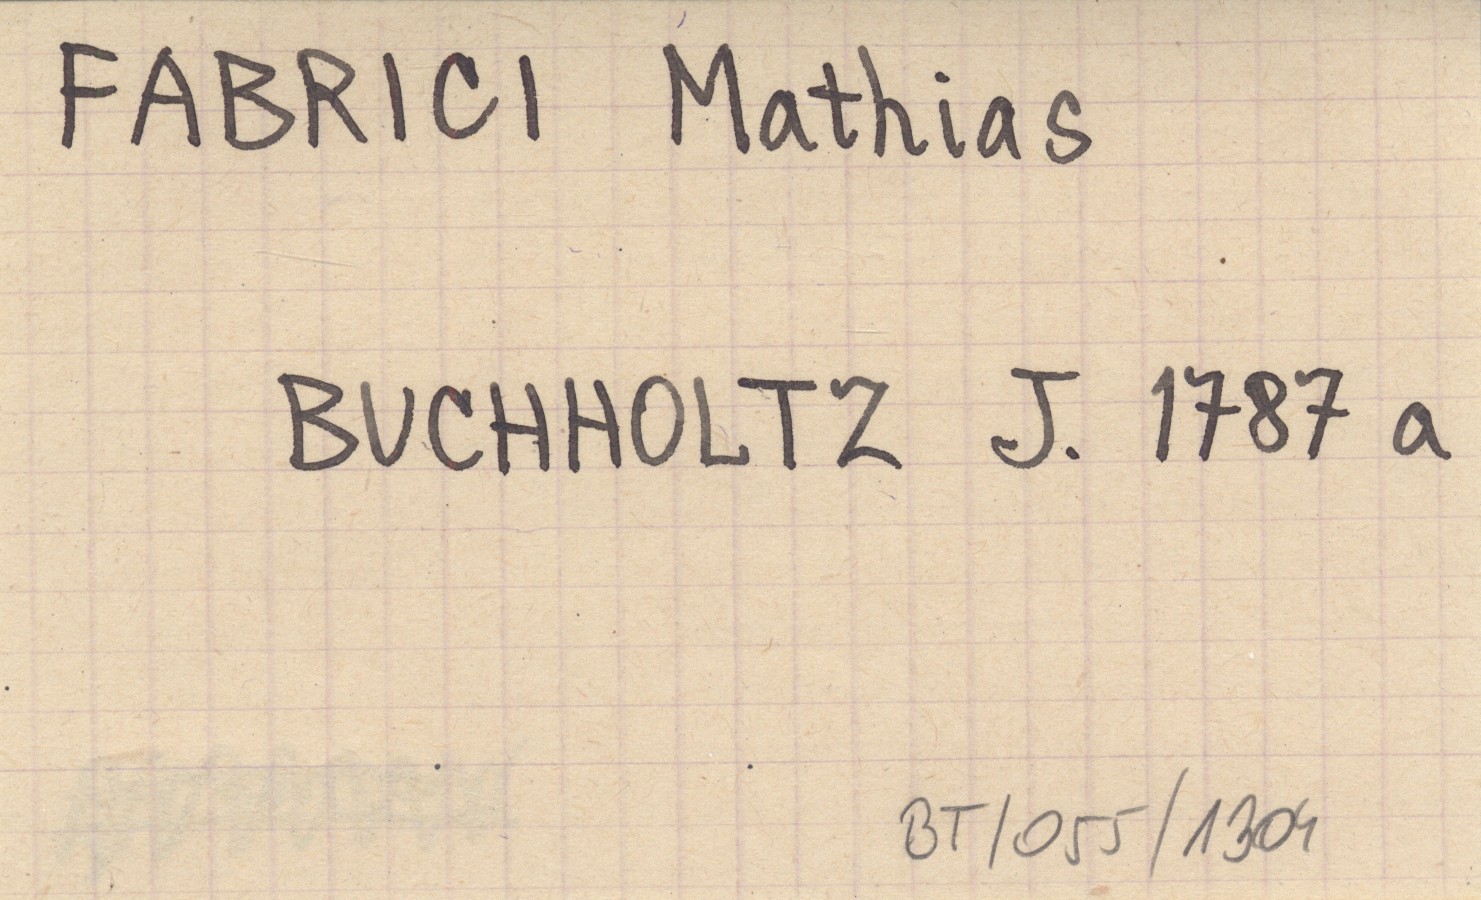 FABRICI Mathias
BUCHHOLTZ J. 1787 a
BT/055/1304